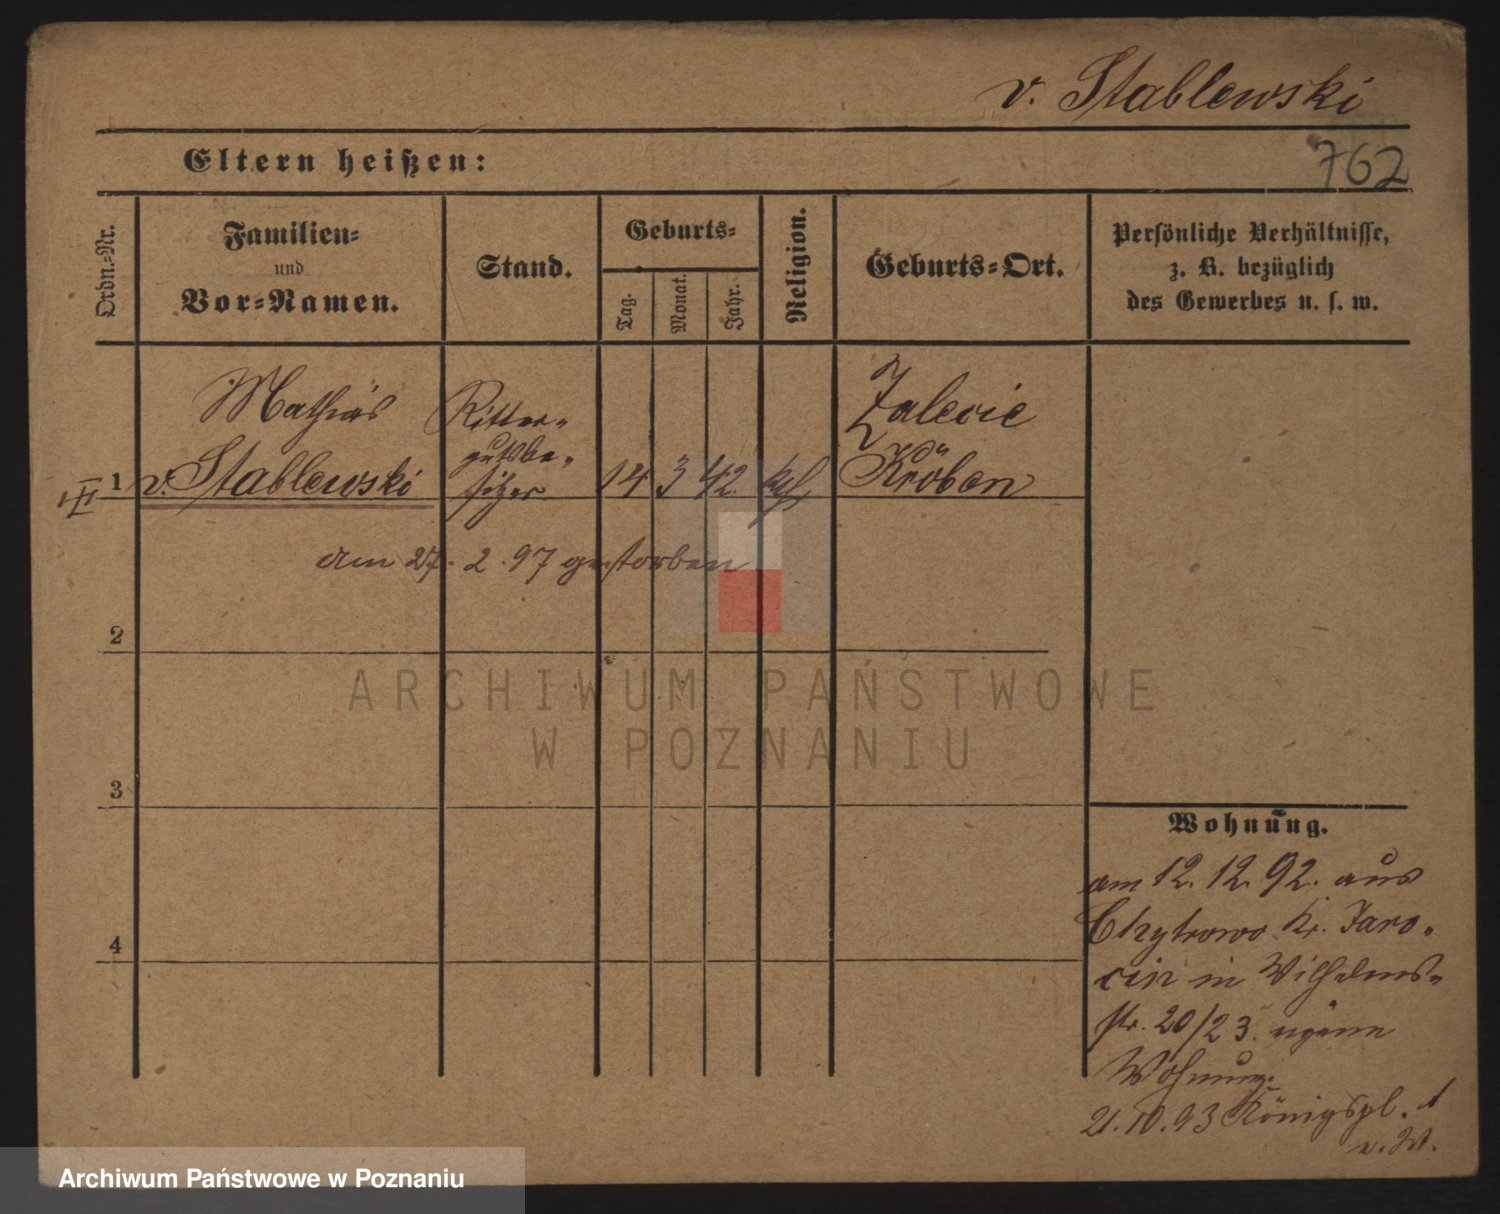 v. Stablewski
Eltern heißen:
762
Ordn.-Nr.
Familien-
und
Vor-Namen.
Stand.
Geburts-
Tag.
Monat.
Jahr.
Religion.
Geburts-Ort.
Persönliche Verhältnisse,
z. B. bezüglich
des Gewerbes u. s. w.
1
Mathias
v. Stablewski
Ritter-
gutsbe-
sitzer
14
3
42.
kth
Zalesie
Kröben
am 27. 2. 97 gestorben
2
3
4
Wohnung.
am 12. 12. 92. aus
Chytrowo Kr. Jaro-
cin in Wilhelms-
str. 20/23. eigene
Wohnung.
21.10.93 Königspl. 1
e. W.
ARCHIWUM PAŃSTWOWE
W POZNANIU
Archiwum Państwowe w Poznaniu